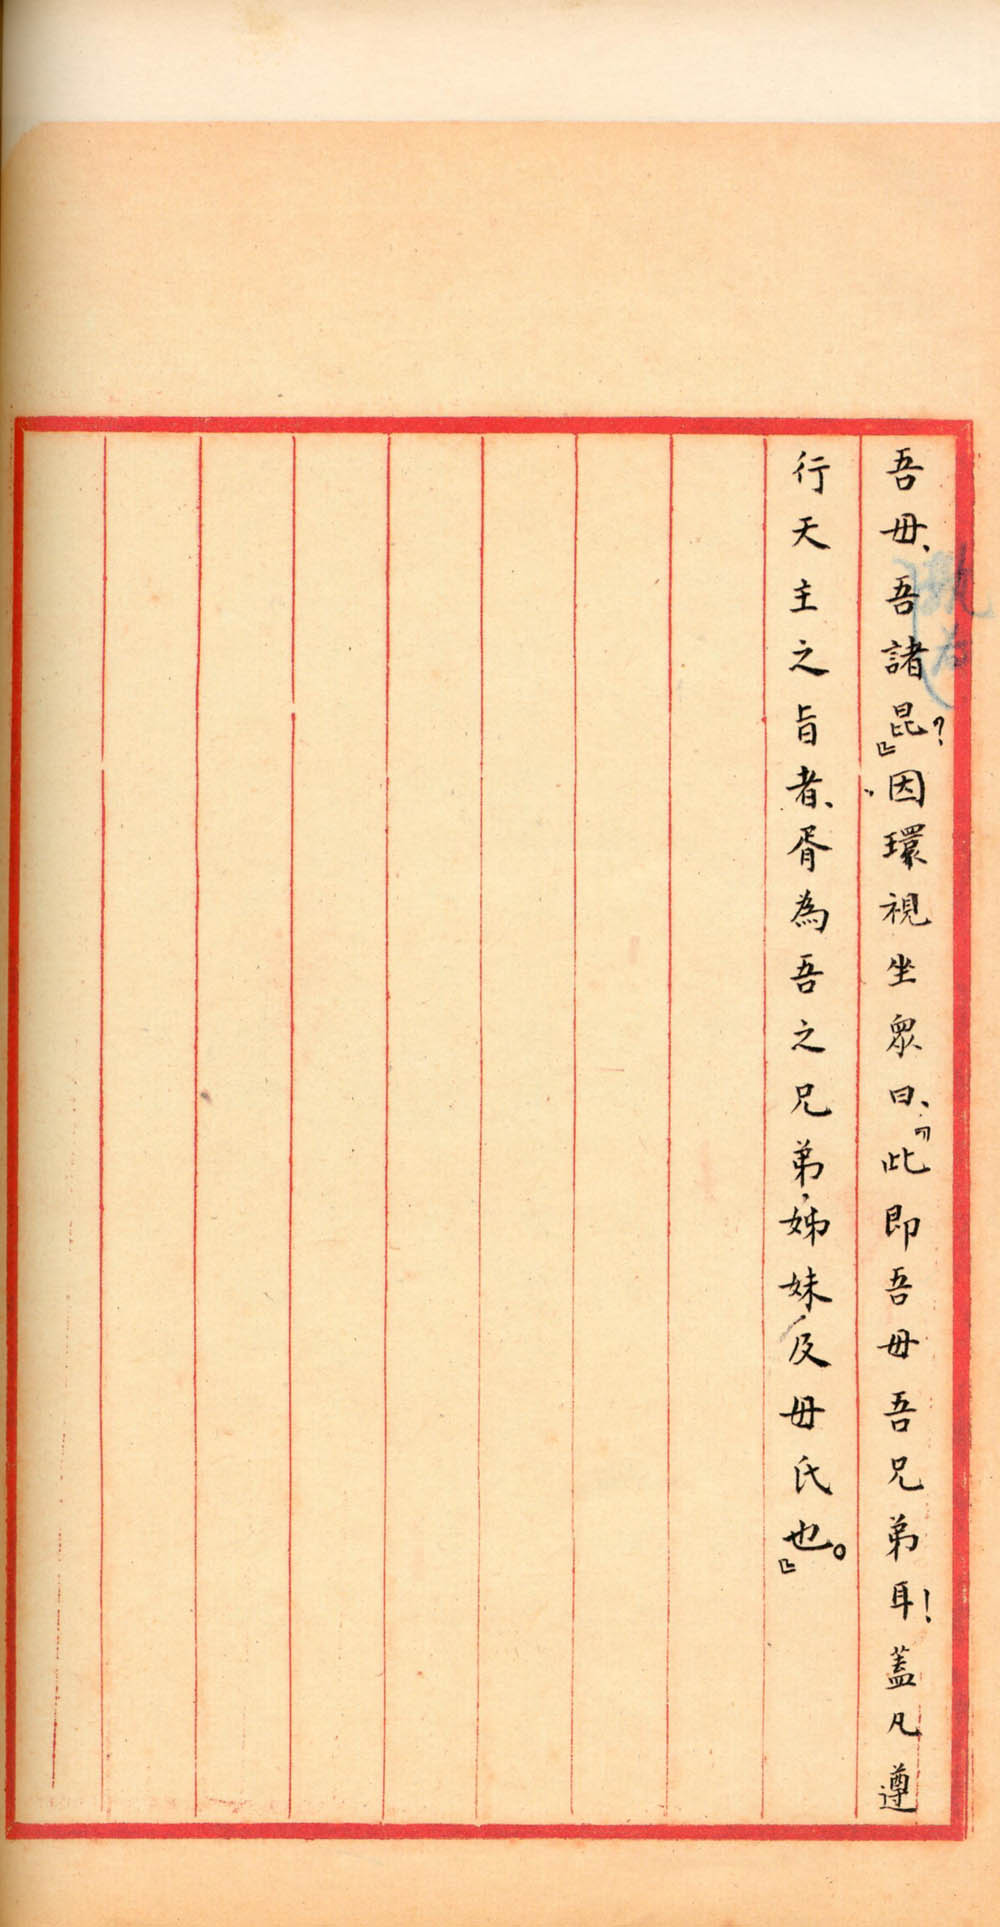 吾母、吾諸昆？』因環視坐衆曰、『此即吾母吾兄弟耳！蓋凡遵
行天主之旨者、胥為吾之兄弟、姊妹、及母氏也。』